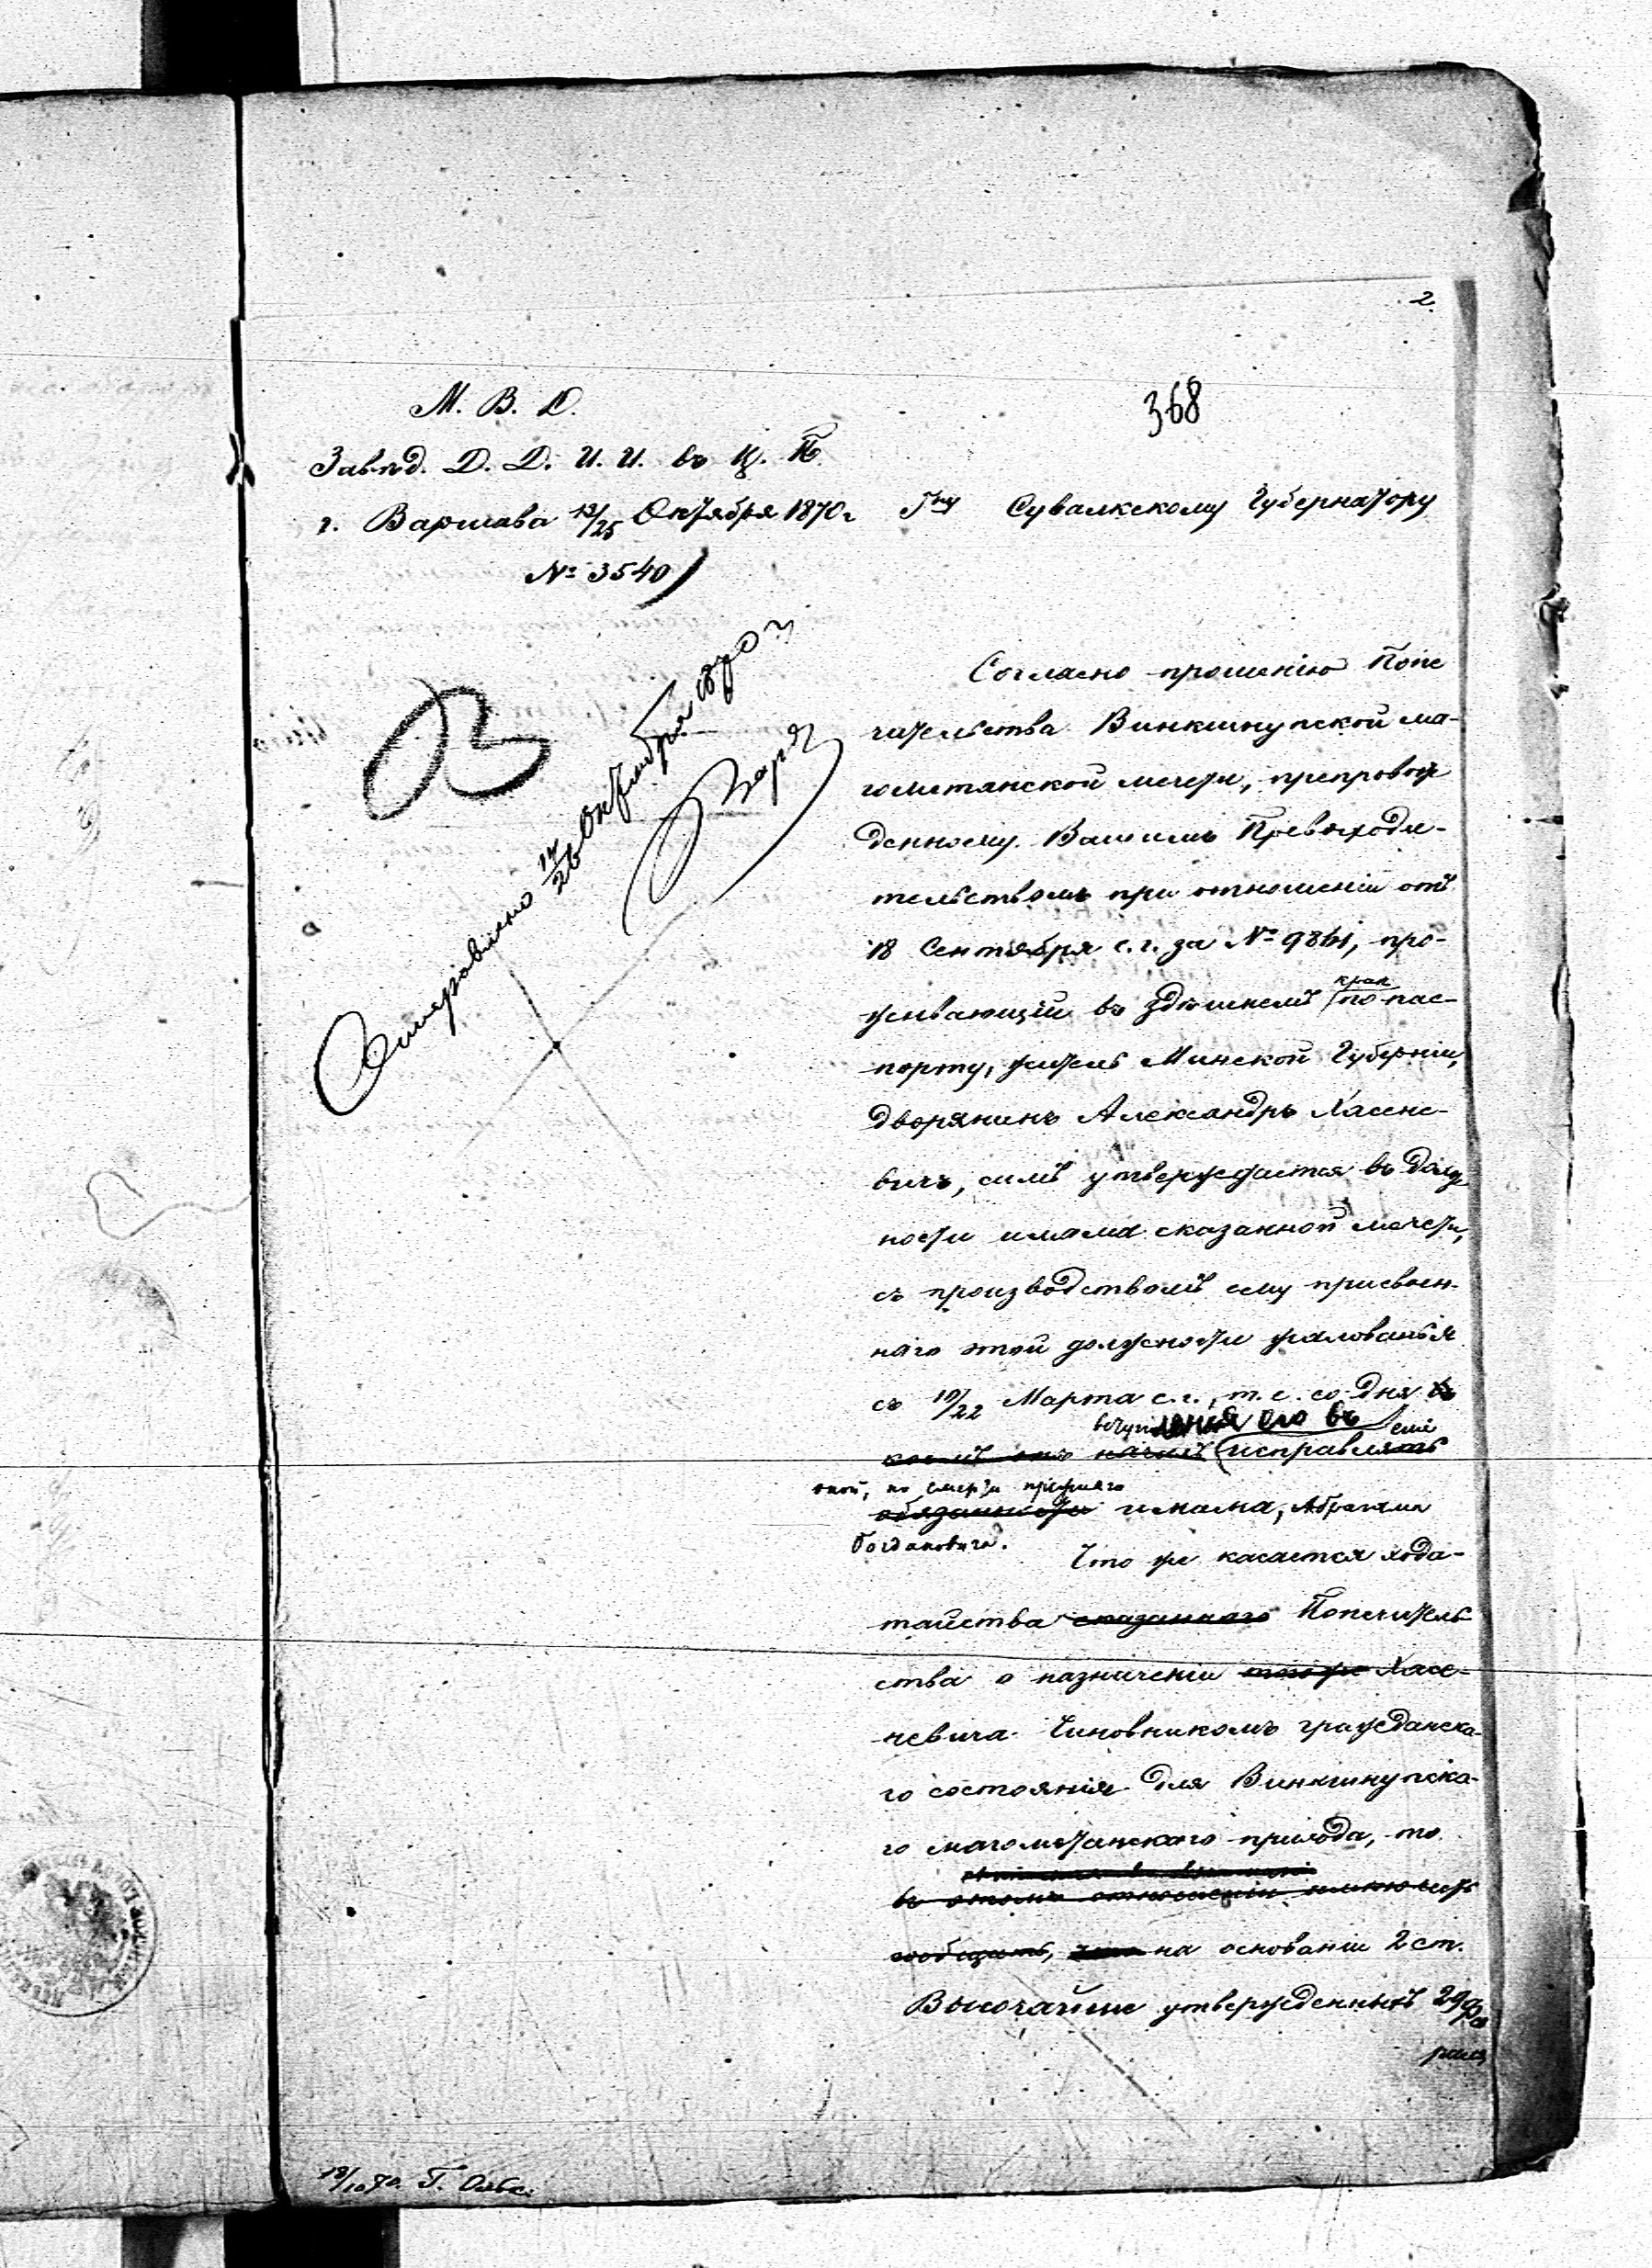 2
368
М. В. Д.
Завѣд. Д. Д. И. И. въ Ц. П.
г. Варшава 13/25 Октября 1870 г.
№ 3540
Гну Сувалкскому Губернатору
Отправлено 14/26 Октября 1870 г.
Согласно прошенію Попе
чительства Винкшнупской ма-
гометанской мечети, препровож
денному Вашимъ Превосходи-
тельствомъ при отношеніи отъ
18 Сентября с. г. за № 9861, про-
живающій въ здѣшнемъ краѣ по пас-
порту, житель Минской Губерніи,
дворянинъ Александръ Хасене-
вичъ, симъ утверждается въ долж
ности имама сказанной мечети,
съ производствомъ ему присвоен-
наго этой должности жалованья
съ 10/22 Марта с. г., т. е. со дня
вступленія его въ исправленіе
оной, по смерти прежняго
обязанности имама, Абрагама
Богдановича.
Что же касается хода-
тайства сказаннаго Попечитель
ства о назначеніи того же Хасе-
невича Чиновникомъ гражданска-
го состоянія для Винкшнупска-
го магометанскаго прихода, то
въ этомъ отношеніи имѣю честь
сообщить, что на основаніи 2 ст.
Высочайше утвержденныхъ 29
13/10 70. Г.